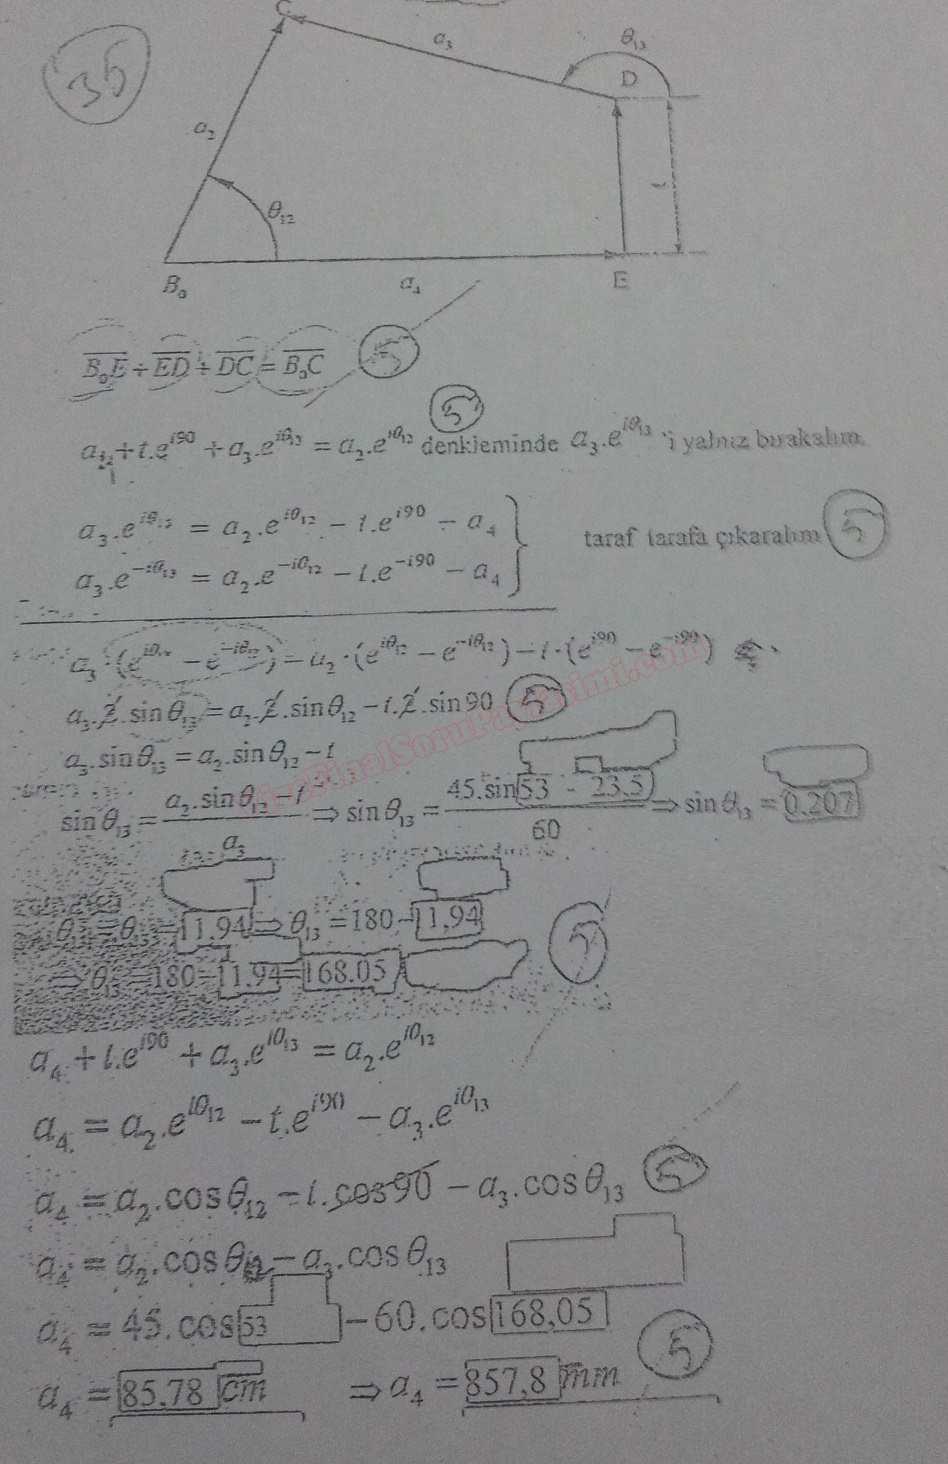 C
35
a₃
θ₁₃
D
a₂
θ₁₂
t
B₀
a₄
E
B₀E + ED + DC = B₀C 5
5
a₄ + t.e^{i90} + a₃.e^{iθ₁₃} = a₂.e^{iθ₁₂} denkleminde a₃.e^{iθ₁₃} 'i yalnız bırakalım.
a₃.e^{iθ₁₃} = a₂.e^{iθ₁₂} − t.e^{i90} − a₄
taraf tarafa çıkaralım 5
a₃.e^{-iθ₁₃} = a₂.e^{-iθ₁₂} − t.e^{-i90} − a₄
a₃.(e^{iθ₁₃} − e^{-iθ₁₃}) = a₂.(e^{iθ₁₂} − e^{-iθ₁₂}) − t.(e^{i90} − e^{-i90})
a₃.2.sinθ₁₃ = a₂.2.sinθ₁₂ − t.2.sin90 5
a₃.sinθ₁₃ = a₂.sinθ₁₂ − t
sinθ₁₃ = (a₂.sinθ₁₂ − t)/a₃ ⇒ sinθ₁₃ = (45.sin53 - 23.5)/60 ⇒ sinθ₁₃ = 0.207
θ₁₃ = 11.94 ⇒ θ₁₃ = 180 − 11.94 5
⇒ θ₁₃ = 180 − 11.94 = 168.05
a₄ + t.e^{i90} + a₃.e^{iθ₁₃} = a₂.e^{iθ₁₂}
a₄ = a₂.e^{iθ₁₂} − t.e^{i90} − a₃.e^{iθ₁₃}
a₄ = a₂.cosθ₁₂ − t.cos90 − a₃.cosθ₁₃ 5
a₄ = a₂.cosθ₁₂ − a₃.cosθ₁₃
a₄ = 45.cos53 − 60.cos168,05
5
a₄ = 85.78 cm ⇒ a₄ = 857,8 mm